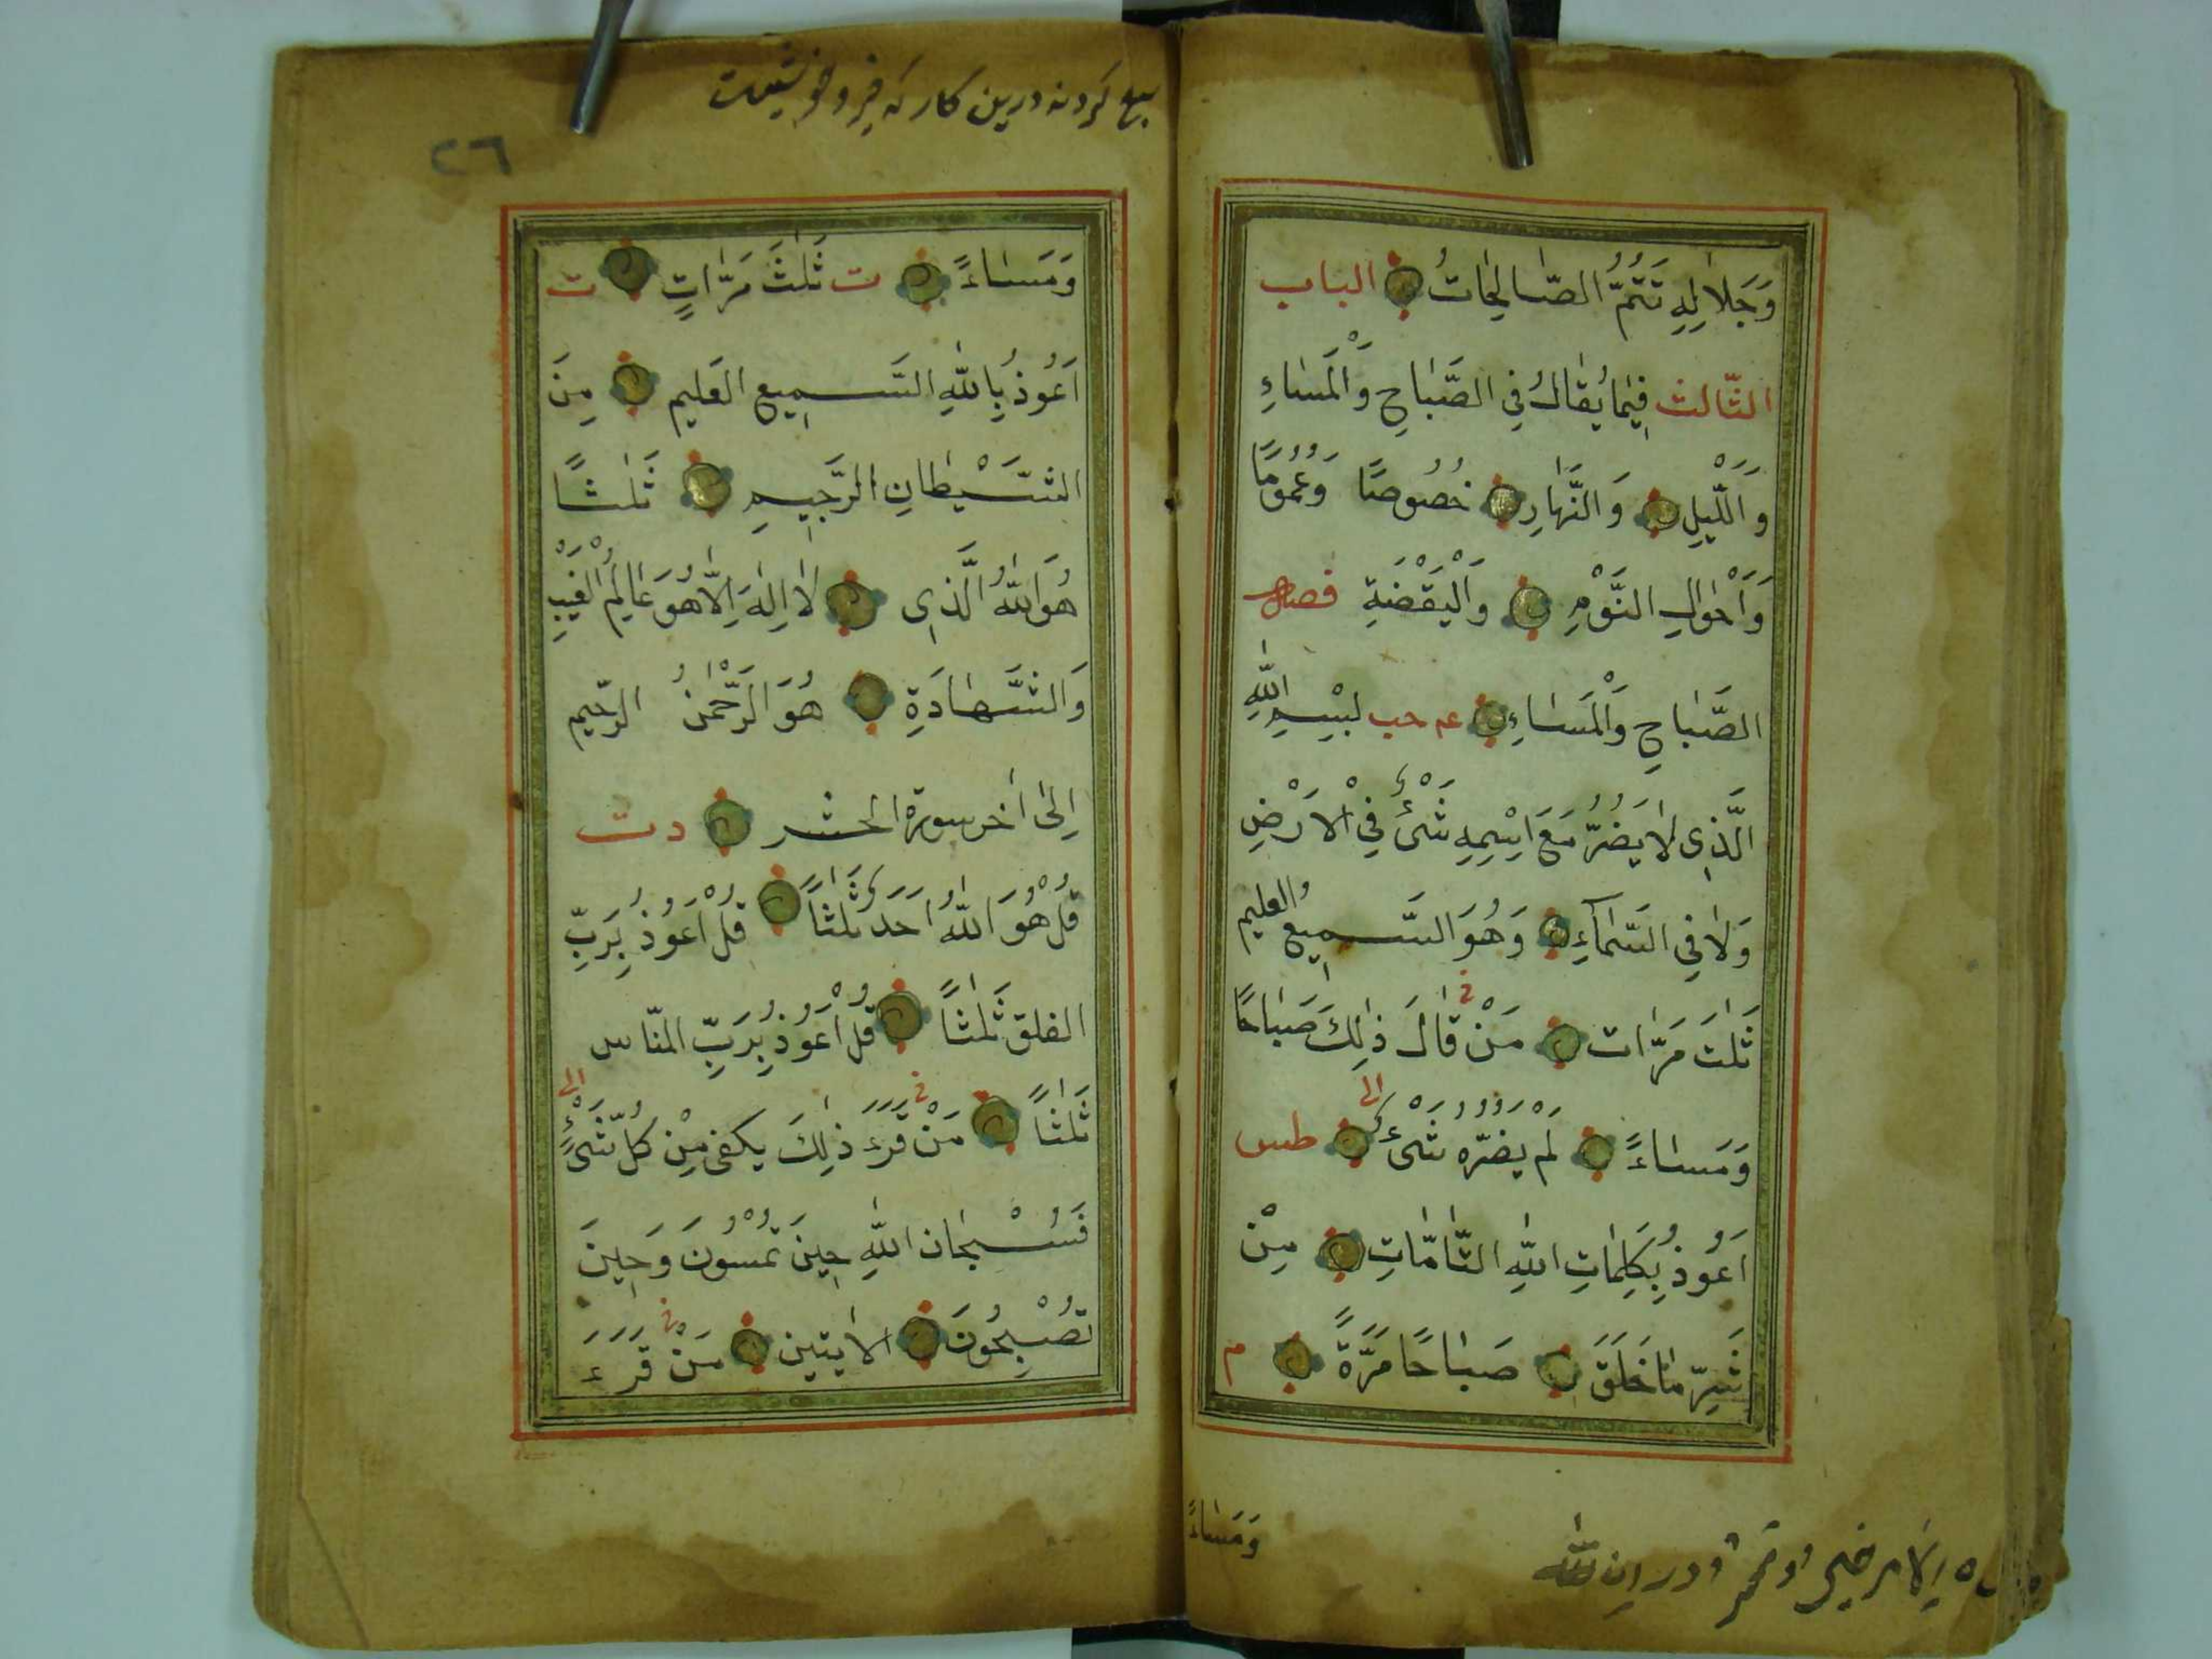 وَجَلَالِهِ تَتِمُّ الصَّالِحَاتُ الباب
الثّالث فِيمَا يُقَالُ فِي الصَّبَاحِ وَالْمَسَاءِ
وَاللَّيْلِ وَالنَّهَارِ خُصُوصًا وَعُمُومًا
وَاَحْوَالِ النَّوْمِ وَالْيَقْضَةِ فصل
الصَّبَاحِ وَالْمَسَاءِ عه حب بِسْمِ اللّٰهِ
الَّذِى لَا يَضُرُّ مَعَ اسْمِهِ شَىْءٌ فِي الْاَرْضِ
وَلَا فِي السَّمَآءِ وَهُوَ السَّمِيعُ العليم
ثَلٰثَ مَرَّات مَنْ قَالَ ذٰلِكَ صَبَاحًا
وَمَسَاءً لَمْ يَضُرّهُ شَىْءٌ الى طس
اَعُوذُ بِكَلِمَاتِ اللّٰهِ التَّامَّاتِ مِنْ
شَرِّ مَا خَلَقَ صَبَاحًا مَرَّةً م
وَمَسَاءً
بيع كردنه درين كار كه
٢٦
وَمَسَاءً ت ثَلٰثَ مَرَّاتٍ ت
اَعُوذُ بِاللّٰهِ السَّمِيعِ العَلِيم مِنَ
الشَّيْطَانِ الرَّجِيمِ ثَلٰثًا
هُوَ اللّٰهُ الَّذِى لَا اِلٰهَ اِلَّا هُوَ عَالِمُ الْغَيْبِ
وَالشَّهَادَةِ هُوَ الرَّحْمٰنُ الرَّحِيم
اِلٰى اٰخر سورة الحشر د ت
قُلْ هُوَ اللّٰهُ اَحَدٌ ثَلٰثًا قُلْ اَعُوذُ بِرَبِّ
الفلق ثَلٰثًا قُلْ اَعُوذُ بِرَبِّ النّاس
ثَلٰثًا مَنْ قَرَءَ ذٰلِكَ يكفى مِنْ كُلِّ شَىْءٍ الى
فَسُبْحَانَ اللّٰهِ حِينَ تُمْسُونَ وَحِينَ
تُصْبِحُونَ الاٰيتين مَنْ قَرَءَ